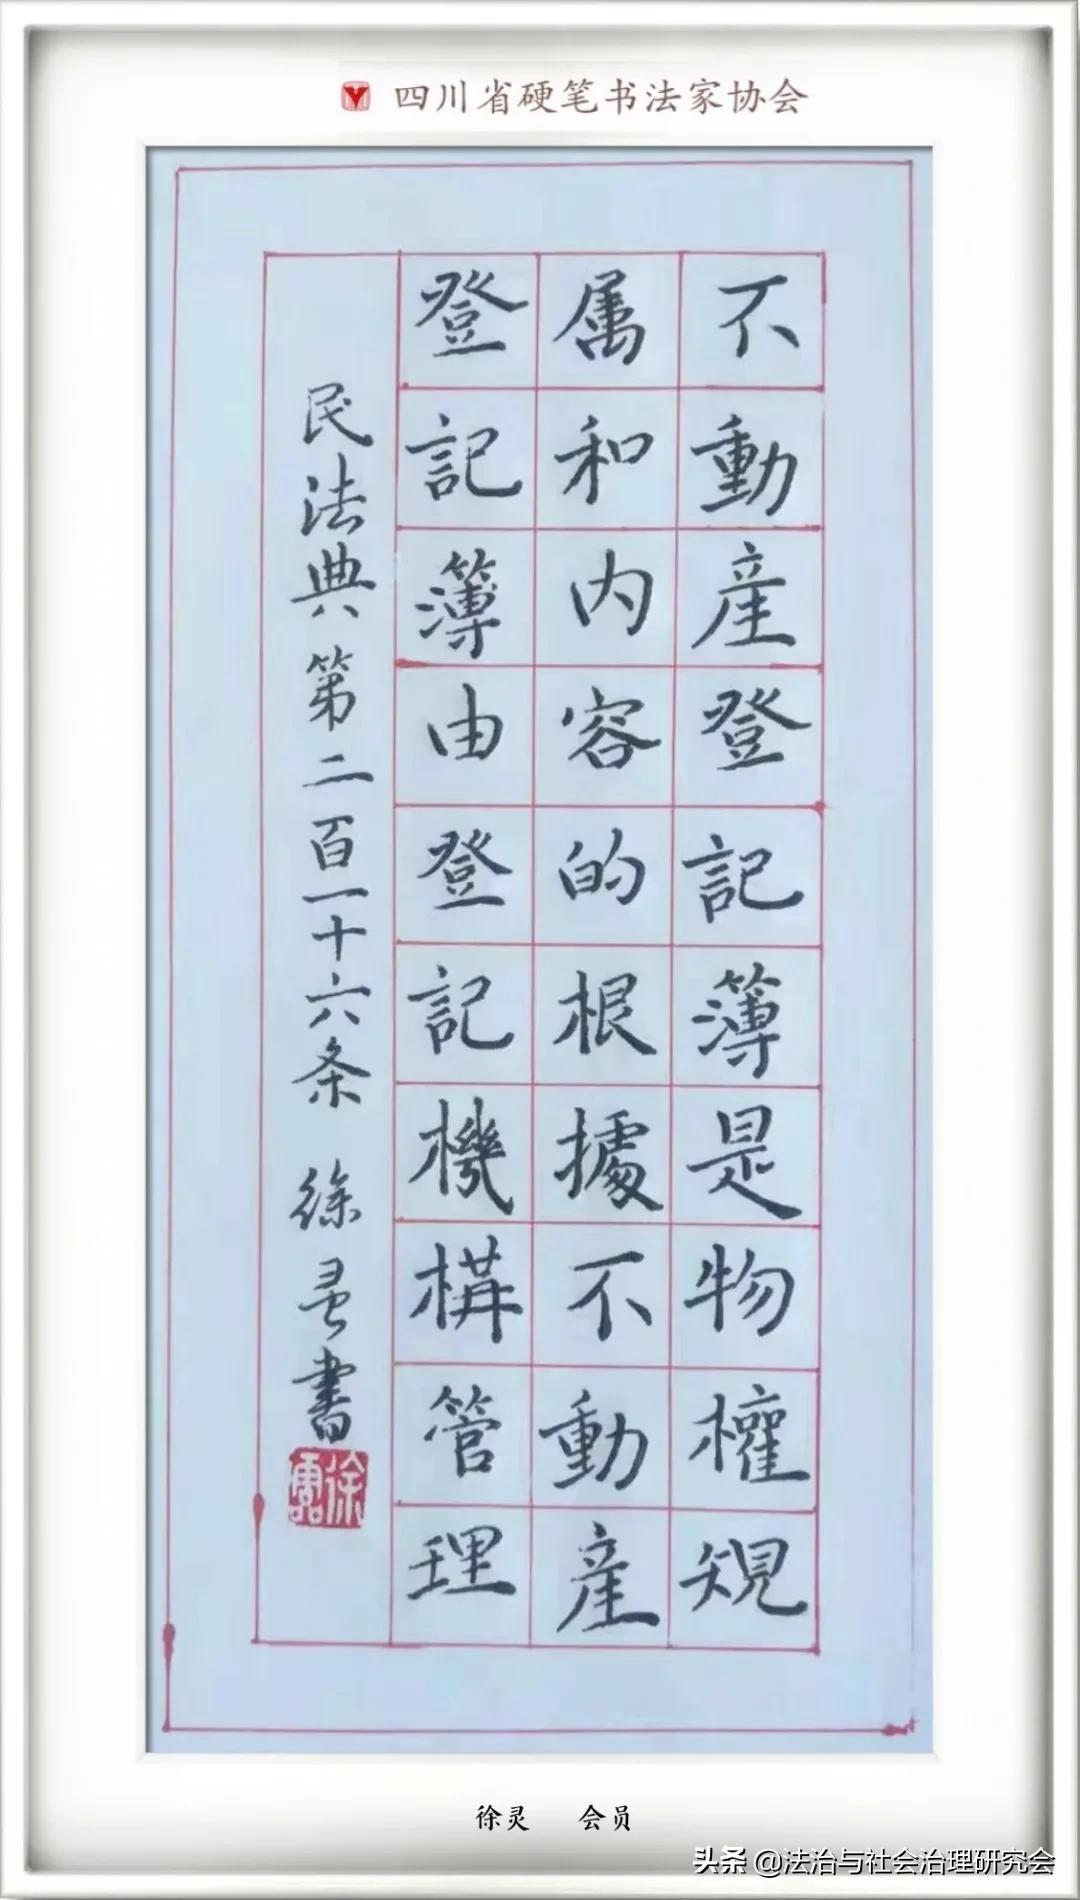 四川省硬笔书法家协会
不動産登記簿是物權規
属和内容的根據不動産
登記簿由登記機構管理
民法典第二百一十六条 徐灵書
徐靈
徐灵 会员
头条 @法治与社会治理研究会